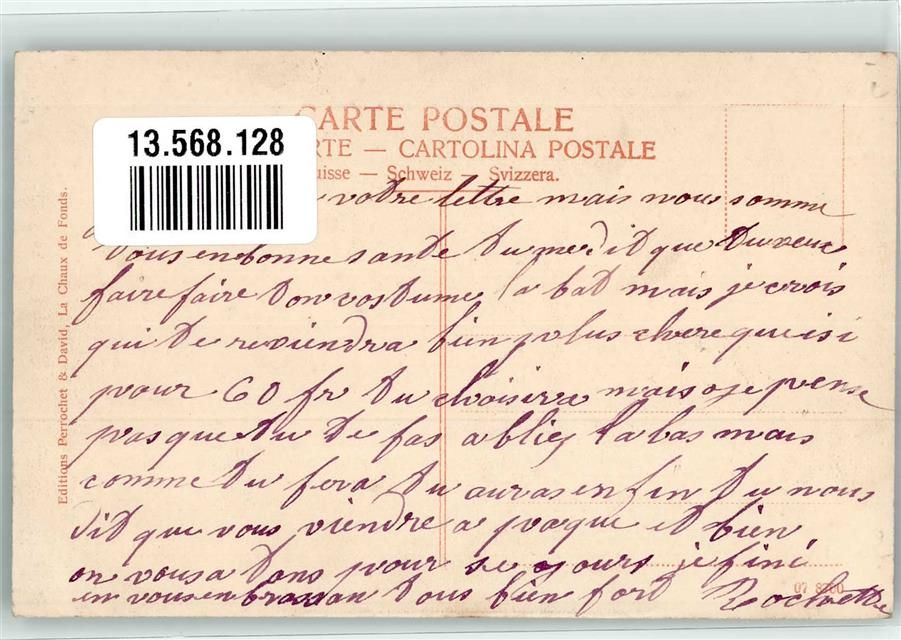 CARTE POSTALE
RTE — CARTOLINA POSTALE
uisse — Schweiz — Svizzera.
13.568.128
Editions Perrochet & David, La Chaux de Fonds.
votre lettre mais nous somme
tous en bonne sante tu me dit que tu veux
faire faire ton costume la bat mais je crois
qui te reviendra bien plus chere que isi
pour 60 fr tu choisira mais je pense
pas que tu te fas abliez la bas mais
comme tu fera tu auras enfin tu nous
dit que vous viendre a paque et bien
on vous atans pour se jours je fini
en vous enbrassan tous bien fort
07 8760